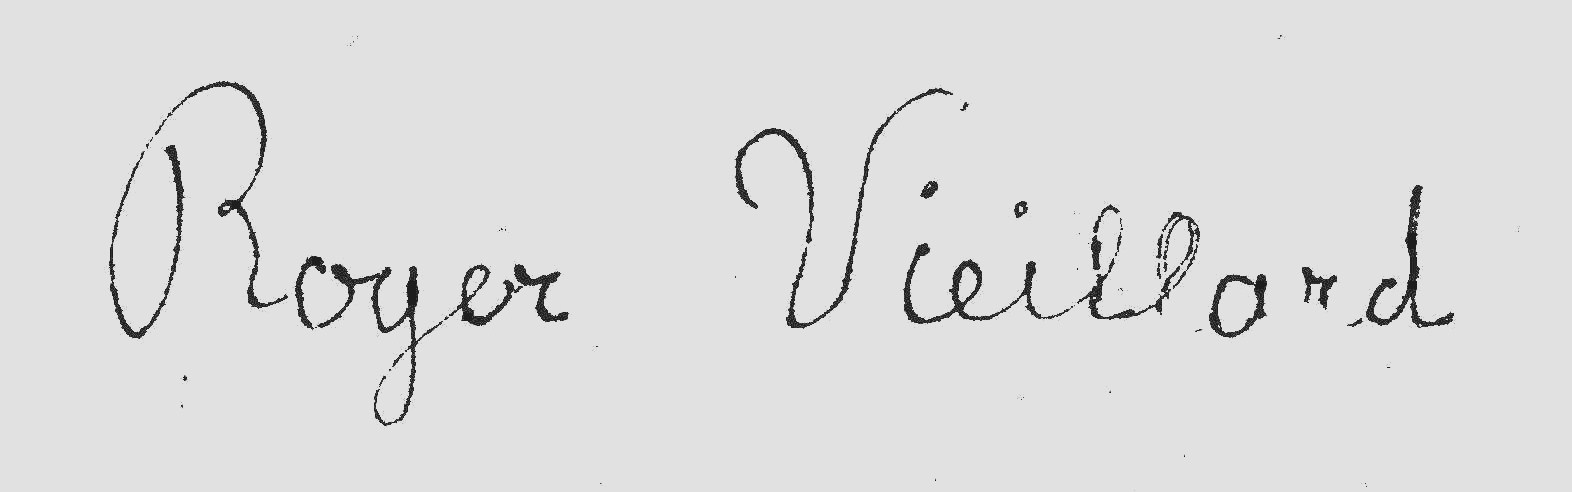 Roger Vieillard